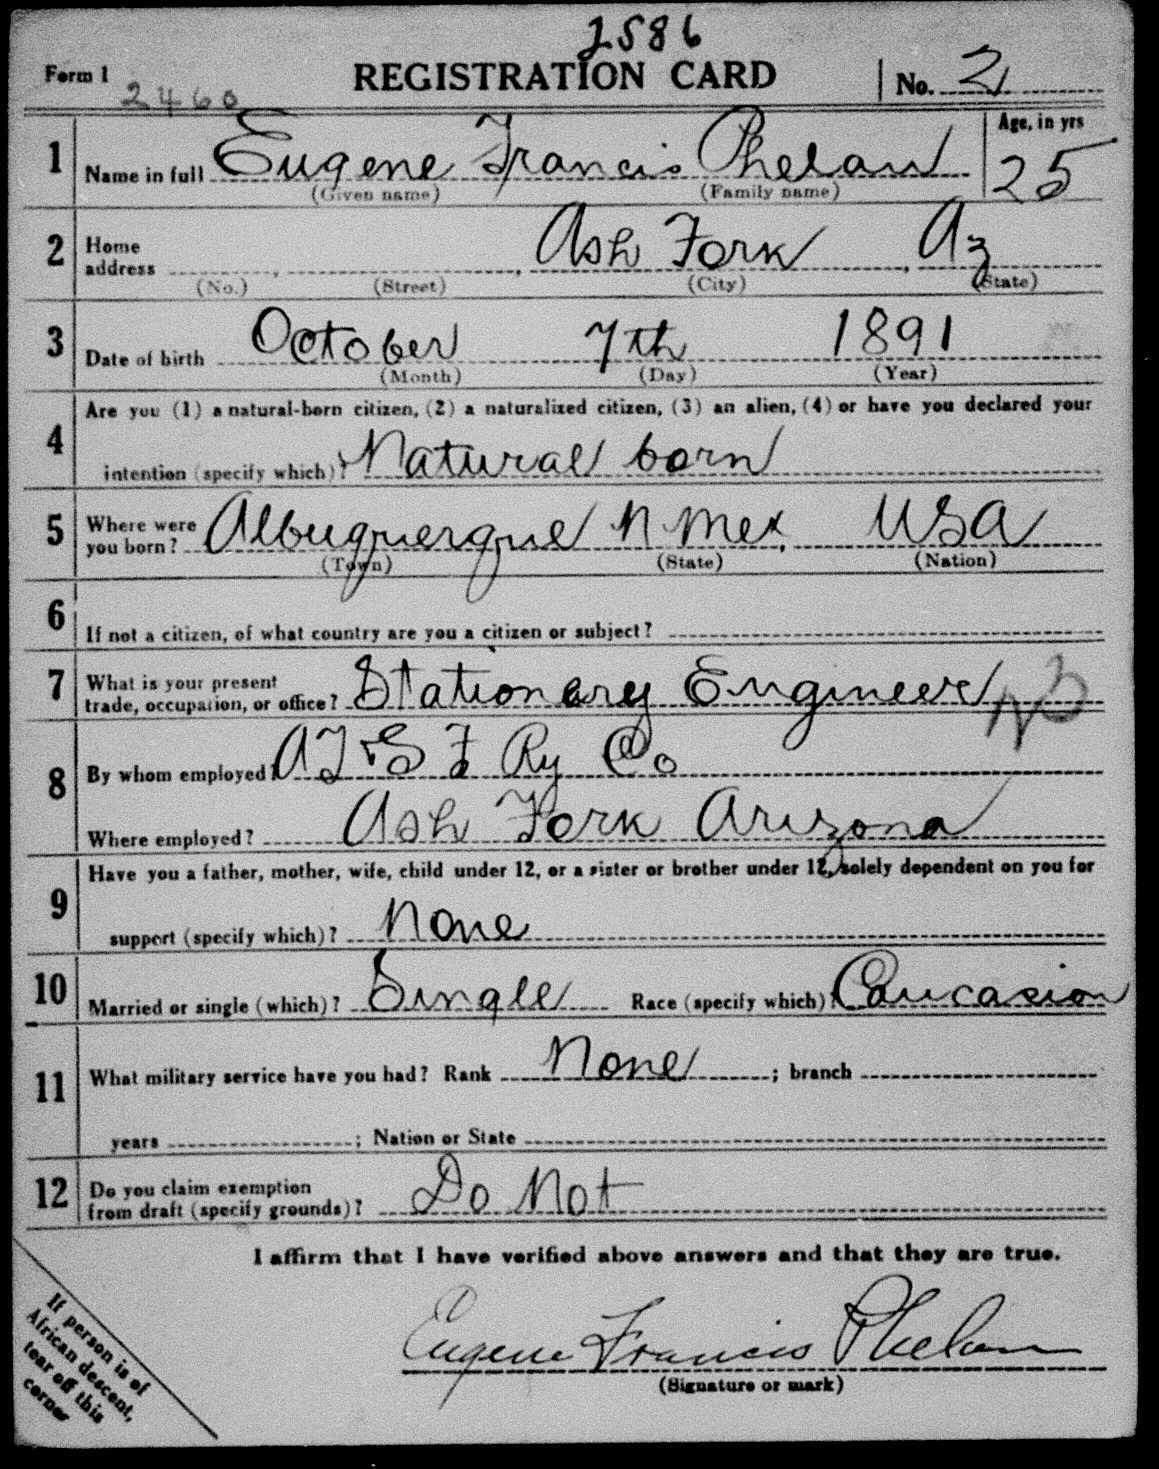 2586
Form 1 REGISTRATION CARD No. 2
2460
1 Name in full Eugene Francis Phelan Age, in yrs 25
(Given name) (Family name)
2 Home address Ash Fork Az
(No.) (Street) (City) (State)
3 Date of birth October 7th 1891
(Month) (Day) (Year)
4 Are you (1) a natural-born citizen, (2) a naturalized citizen, (3) an alien, (4) or have you declared your
intention (specify which)? Natural born
5 Where were you born? Albuquerque N Mex, USA
(Town) (State) (Nation)
6 If not a citizen, of what country are you a citizen or subject?
7 What is your present
trade, occupation, or office? Stationary Engineer
8 By whom employed? AT & S F Ry Co
Where employed? Ash Fork Arizona
9 Have you a father, mother, wife, child under 12, or a sister or brother under 12, solely dependent on you for
support (specify which)? None
10 Married or single (which)? Single Race (specify which)? Caucasion
11 What military service have you had? Rank None ; branch
years ; Nation or State
12 Do you claim exemption
from draft (specify grounds)? Do Not
I affirm that I have verified above answers and that they are true.
Eugene Francis Phelan
(Signature or mark)
If person is of
African descent,
tear off this
corner